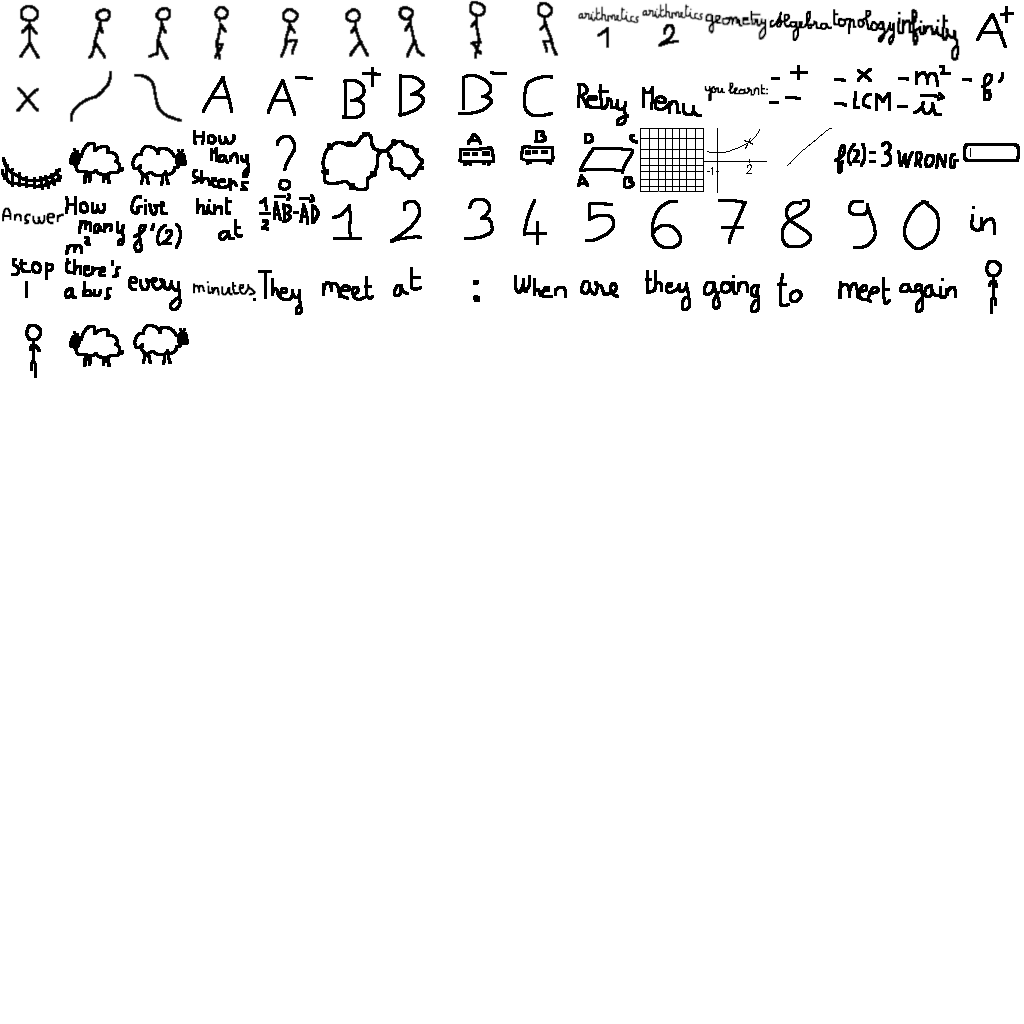 arithmetics arithmetics geometry Algebra topology infinity A+
1 2
x A A- B+ B B- C Retry Menu you learnt: - + - x - m² - f'
- - - LCM - u D
How Many Sheeps ? A B D C f(2)=3 WRONG
A B -1 2
Answer How many m² Give f'(2) hint at 1/2 AB-AD 1 2 3 4 5 6 7 8 9 0 in
Stop 1 there's a bus every minutes. They meet at : When are they going to meet again